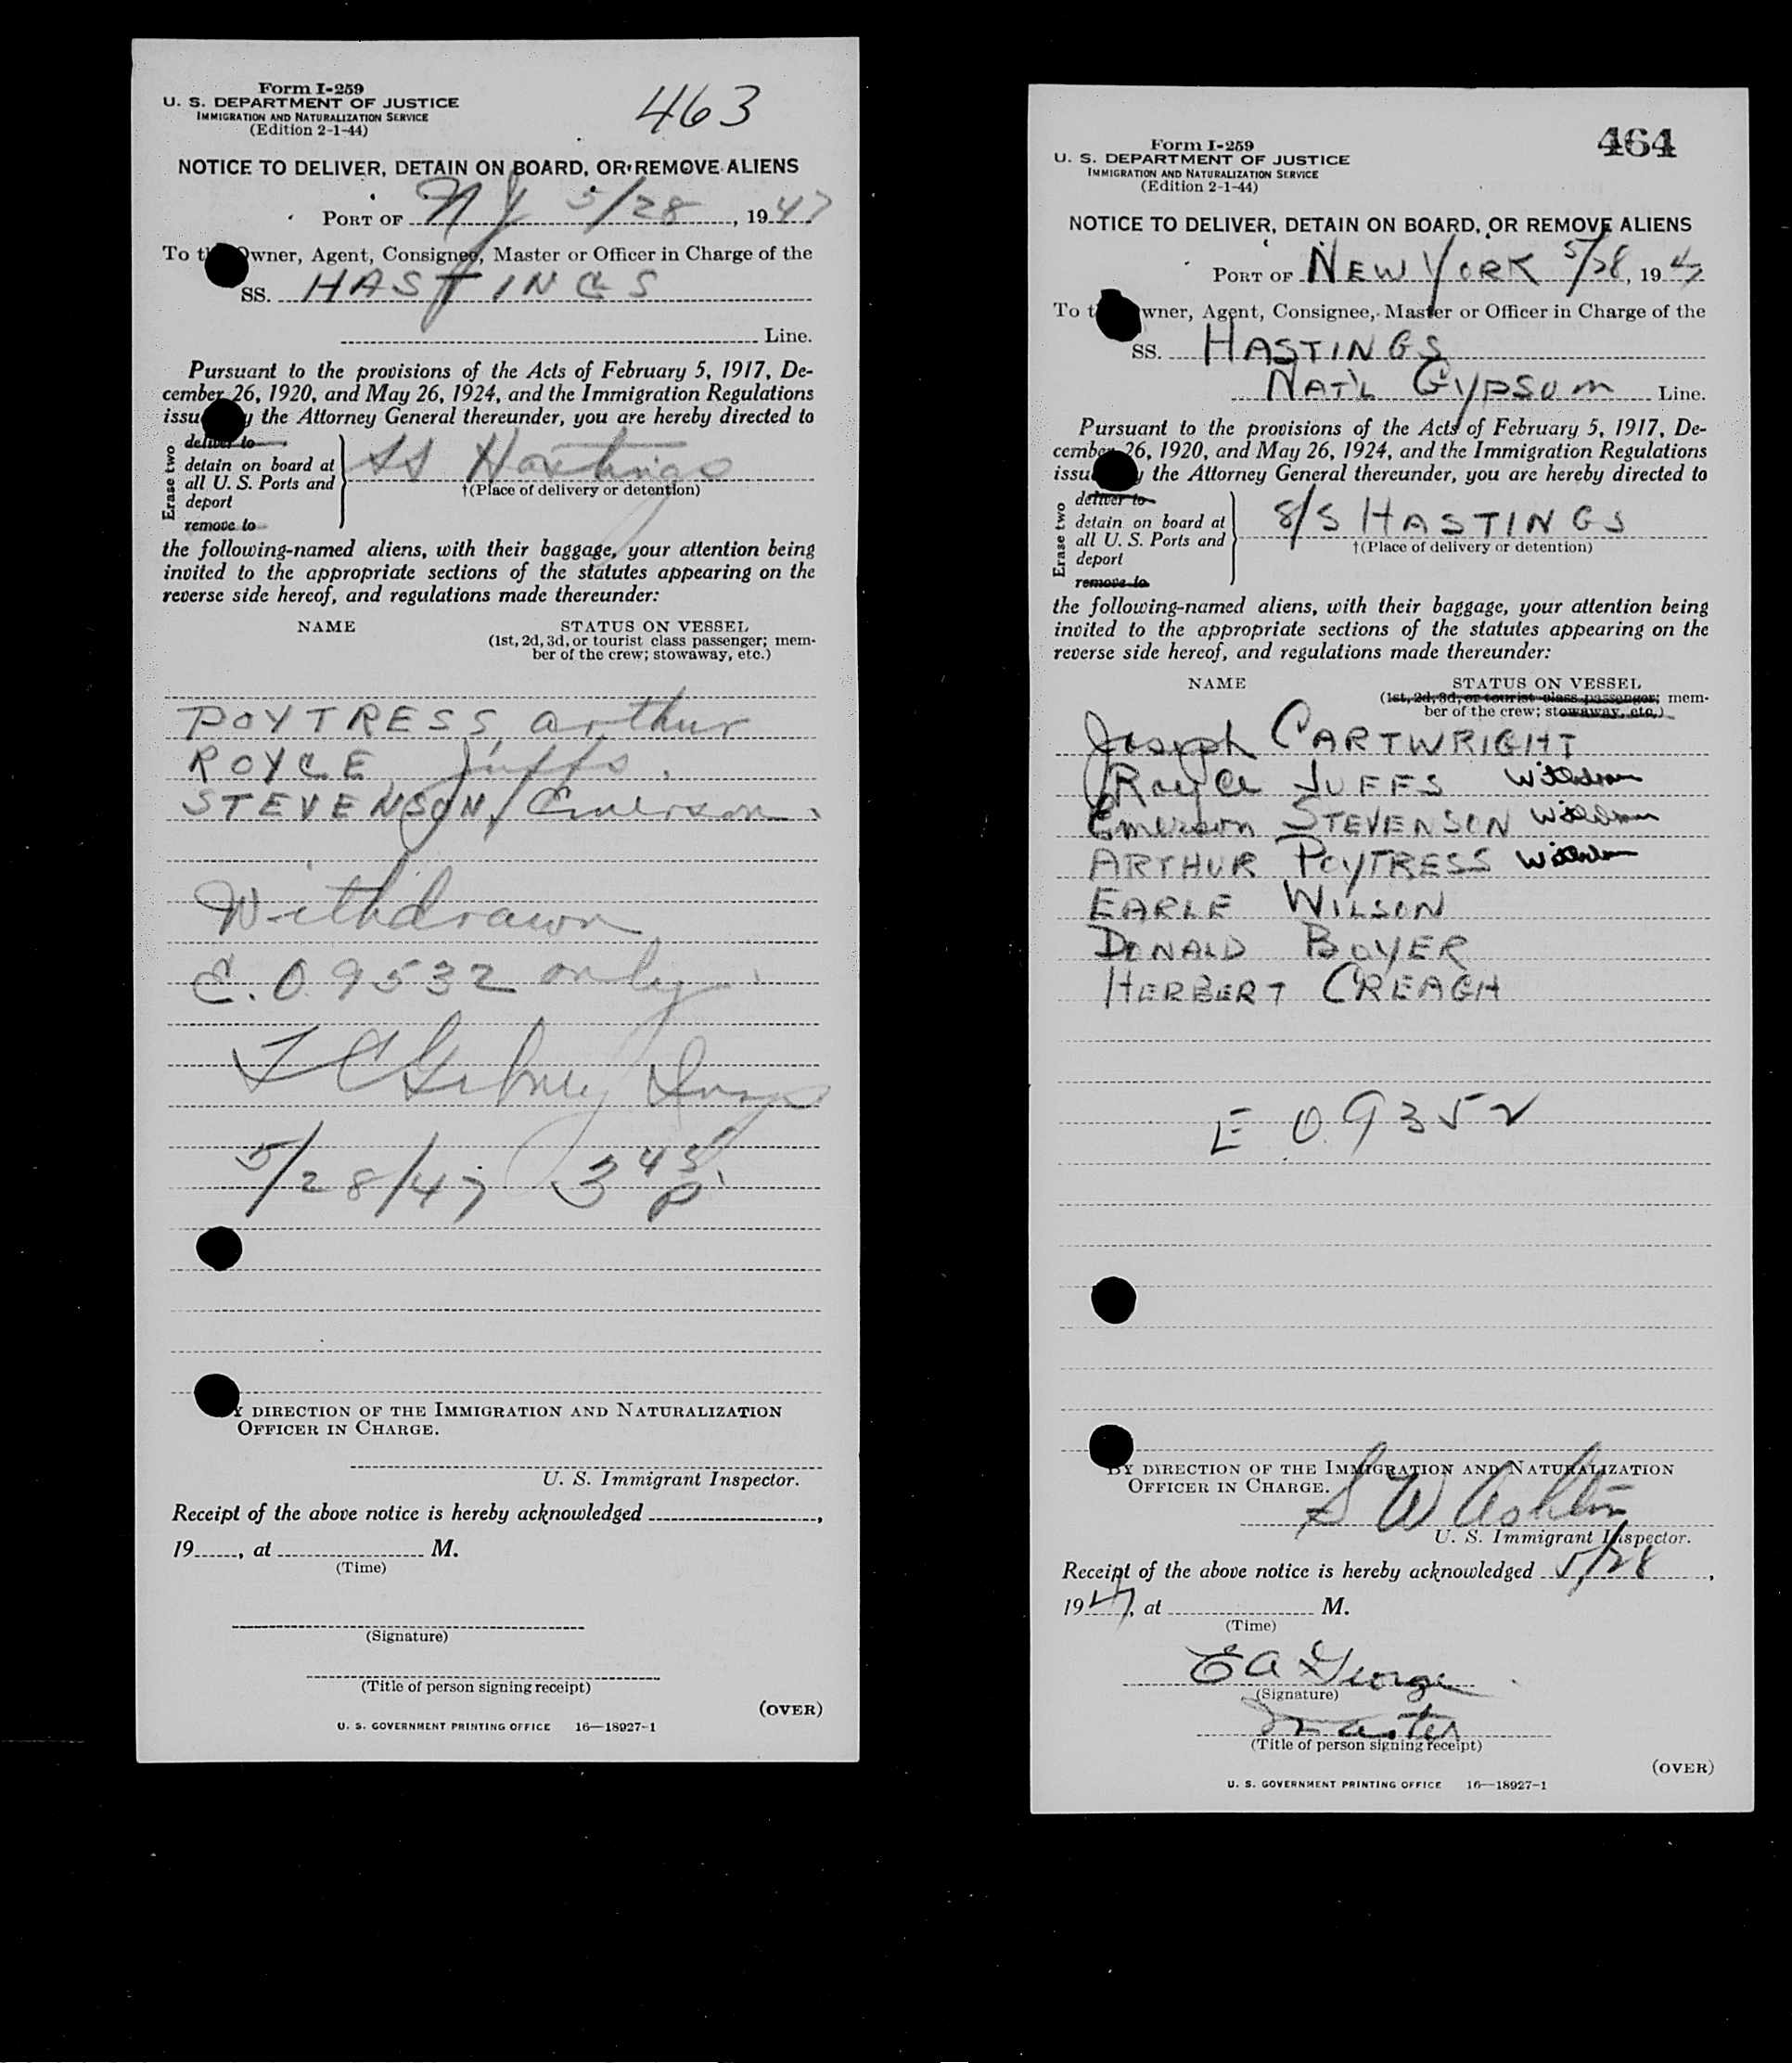 Form I-259
U. S. DEPARTMENT OF JUSTICE
IMMIGRATION AND NATURALIZATION SERVICE
(Edition 2-1-44)
463
NOTICE TO DELIVER, DETAIN ON BOARD, OR REMOVE ALIENS
PORT OF NY 5/28, 1947
To the Owner, Agent, Consignee, Master or Officer in Charge of the
SS. HASTINGS
Line.
Pursuant to the provisions of the Acts of February 5, 1917, De-
cember 26, 1920, and May 26, 1924, and the Immigration Regulations
issued by the Attorney General thereunder, you are hereby directed to
Erase two
deliver to
detain on board at
all U. S. Ports and
deport
remove to
SS Hastings
†(Place of delivery or detention)
the following-named aliens, with their baggage, your attention being
invited to the appropriate sections of the statutes appearing on the
reverse side hereof, and regulations made thereunder:
NAME STATUS ON VESSEL
(1st, 2d, 3d, or tourist class passenger; mem-
ber of the crew; stowaway, etc.)
POYTRESS, Arthur
ROYCE, Juffs.
STEVENSON, Emerson.
Withdrawn
E.O. 9532 only
5/28/47 3 45 P.
BY DIRECTION OF THE IMMIGRATION AND NATURALIZATION
OFFICER IN CHARGE.
U. S. Immigrant Inspector.
Receipt of the above notice is hereby acknowledged ,
19 , at M.
(Time)
(Signature)
(Title of person signing receipt)
(OVER)
U. S. GOVERNMENT PRINTING OFFICE 16—18927-1
Form I-259
U. S. DEPARTMENT OF JUSTICE
IMMIGRATION AND NATURALIZATION SERVICE
(Edition 2-1-44)
464
NOTICE TO DELIVER, DETAIN ON BOARD, OR REMOVE ALIENS
PORT OF NEW YORK 5/28, 1947
To the Owner, Agent, Consignee, Master or Officer in Charge of the
SS. HASTINGS
NAT'L GYPSUM Line.
Pursuant to the provisions of the Acts of February 5, 1917, De-
cember 26, 1920, and May 26, 1924, and the Immigration Regulations
issued by the Attorney General thereunder, you are hereby directed to
Erase two
deliver to
detain on board at
all U. S. Ports and
deport
remove to
S/S HASTINGS
†(Place of delivery or detention)
the following-named aliens, with their baggage, your attention being
invited to the appropriate sections of the statutes appearing on the
reverse side hereof, and regulations made thereunder:
NAME STATUS ON VESSEL
(1st, 2d, 3d, or tourist class passenger; mem-
ber of the crew; stowaway, etc.)
Joseph CARTWRIGHT
Royce JUFFS Withdrawn
Emerson STEVENSON Withdrawn
ARTHUR POYTRESS Withdrawn
EARLE WILSON
DONALD BOYER
HERBERT CREAGH
E O. 9352
BY DIRECTION OF THE IMMIGRATION AND NATURALIZATION
OFFICER IN CHARGE.
S W Ashton
U. S. Immigrant Inspector.
Receipt of the above notice is hereby acknowledged 5/28,
1947, at M.
(Time)
E A George
(Signature)
Master
(Title of person signing receipt)
(OVER)
U. S. GOVERNMENT PRINTING OFFICE 16—18927-1